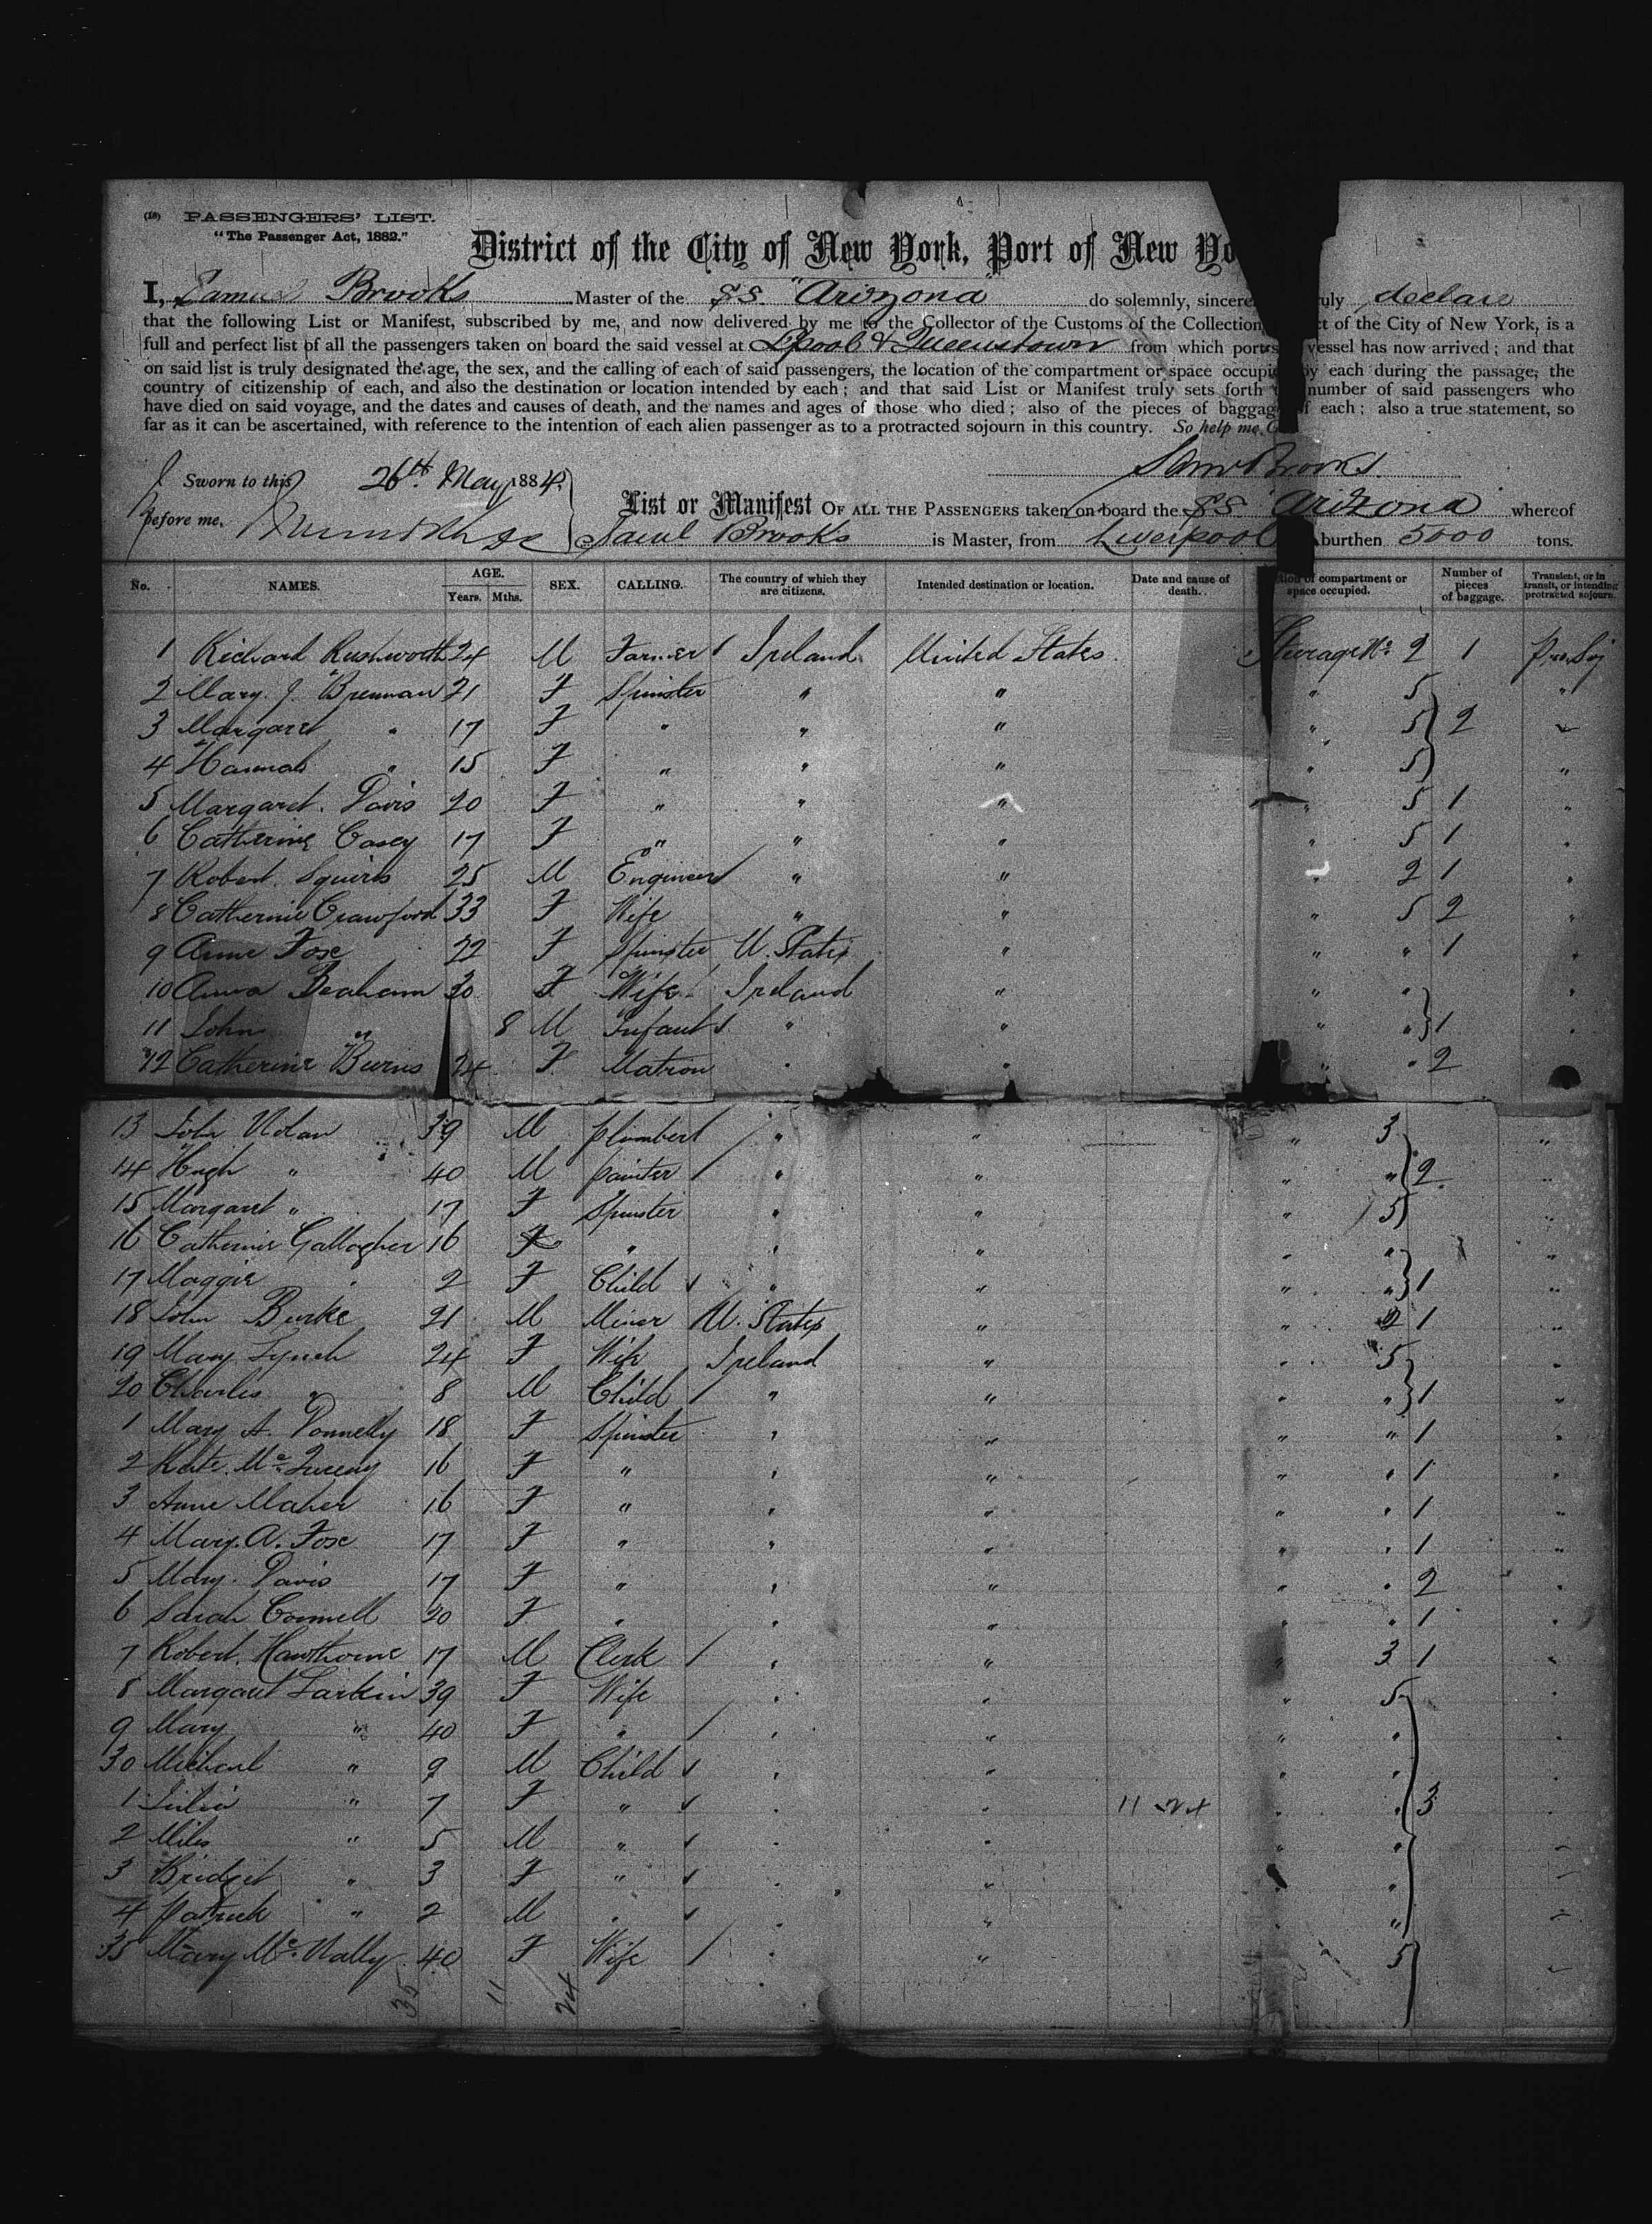 (18) PASSENGERS' LIST.
"The Passenger Act, 1882."
District of the City of New York, Port of New Yo
I, Samuel Brooks Master of the S.S. "Arizona" do solemnly, sincere uly declare
that the following List or Manifest, subscribed by me, and now delivered by me to the Collector of the Customs of the Collection ct of the City of New York, is a
full and perfect list of all the passengers taken on board the said vessel at L'pool & Queenstown from which ports vessel has now arrived; and that
on said list is truly designated the age, the sex, and the calling of each of said passengers, the location of the compartment or space occupi by each during the passage, the
country of citizenship of each, and also the destination or location intended by each; and that said List or Manifest truly sets forth number of said passengers who
have died on said voyage, and the dates and causes of death, and the names and ages of those who died; also of the pieces of baggag f each; also a true statement, so
far as it can be ascertained, with reference to the intention of each alien passenger as to a protracted sojourn in this country. So help me G
Saml Brooks
Sworn to this 26th May 1884.
before me.
List or Manifest OF ALL THE PASSENGERS taken on board the S.S. "Arizona" whereof
Saml Brooks is Master, from Liverpool burthen 5000 tons.
No. NAMES. AGE. Years. Mths. SEX. CALLING. The country of which they are citizens. Intended destination or location. Date and cause of death. tion of compartment or space occupied. Number of pieces of baggage. Transient, or in transit, or intending protracted sojourn.
1 Richard Rushworth 24 M Farmer Ireland United States Steerage No. 2 1 Pro. Soj
2 Mary J. Brennan 21 F Spinster " " " 5 "
3 Margaret " 17 F " " " " 5 2 "
4 Hannah " 15 F " " " " 5 "
5 Margaret Davis 20 F " " " " 5 1 "
6 Catherine Casey 17 F " " " " 5 1 "
7 Robert Squires 25 M Engineer " " " 2 1 "
8 Catherine Crawford 33 F Wife " " " 5 2 "
9 Anne Fox 22 F Spinster U. States " " " 1 "
10 Anna Beahann 30 F Wife Ireland " " " "
11 John " 8 M Infant " " " " 1 "
12 Catherine Burns 24 F Matron " " " " 2
13 John Nolan 39 M plumber " " " 3 "
14 Hugh " 40 M painter " " " " 2 "
15 Margaret " 17 F Spinster " " " 5 "
16 Catherine Gallagher 16 F " " " " " "
17 Maggie " 2 F Child " " " " 1 "
18 John Burke 21 M Miner U. States " " 2 1 "
19 Mary Lynch 24 F Wife Ireland " " 5 "
20 Charles " 8 M Child " " " " 1 "
1 Mary A. Donnelly 18 F Spinster " " " " 1 "
2 Kate 16 F " " " " " 1 "
3 Anne Maher 16 F " " " " " 1 "
4 Mary A. Fox 17 F " " " " " 1 "
5 Mary Davis 17 F " " " " " 2 "
6 Sarah Connell 20 F " " " " " 1 "
7 Robert Hawthorne 17 M Clerk " " " 3 1 "
8 Margaret Larkin 39 F Wife " " " 5 "
9 Mary " 40 F " " " " " "
30 Michael " 9 M Child " " " " "
1 Julia " 7 F " " " 11 24 " " 3
2 Miles " 5 M " " " " "
3 Bridget " 3 F " " " " " "
4 Patrick " 2 M " " " " " "
35 Mary McNally 40 F Wife " " 5 "
35 11 24